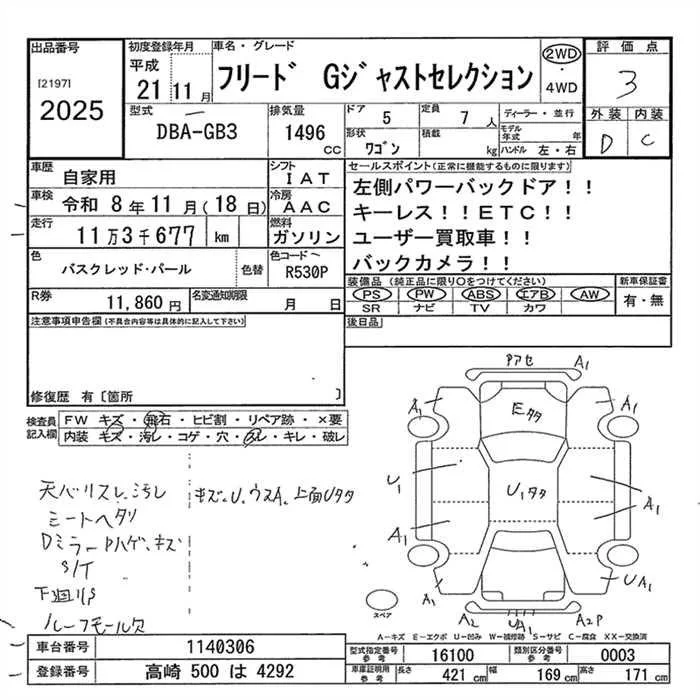 出品番号
[2197]
2025
初度登録年月
平成
21 11月
車名・グレード
フリード Gジャストセレクション
2WD
・
4WD
評価点
3
外装 内装
D C
型式
DBA-GB3
排気量
1496 CC
ドア 5
定員 7 人
形状 ワゴン
積載 kg
ディーラー・並行
モデル年式 年
ハンドル 左・右
車歴 自家用
シフト IAT
車検 令和 8年 11月(18日)
冷房 AAC
走行 11万3千677 km
燃料 ガソリン
色 バスクレッド・パール
色替
色コード R530P
R券 11,860円
名変通知期限 月 日
セールスポイント(正常に機能するものに限ります)
左側パワーバックドア!!
キーレス!!ETC!!
ユーザー買取車!!
バックカメラ!!
装備品(純正品に限り○をつけてください)
PS PW ABS エアB AW
SR ナビ TV カワ
新車保証書
有・無
後日品
注意事項申告欄(不具合内容等は具体的に記入して下さい)
修復歴 有〔箇所 〕
検査員記入欄
FW キズ・飛石・ヒビ割・リペア跡・×要
内装 キズ・汚レ・コゲ・穴・スレ・キレ・破レ
天バリスレ、汚レ
シートヘタリ
Dミラー Pハゲ、キズ
S/T
下廻りS
ルーフモール欠
キズ、U、ウスA、上面Uタタ
Pアセ A1
A1 Eタタ A1
U1 U1タタ A1
A1
A1 UA1
スペア
A2 UA1 A2P
A-キズ E-エクボ U-凹み W-補修跡 S-サビ C-腐食 XX-交換済
車台番号 1140306
登録番号 高崎 500 は 4292
型式指定番号 参考 16100
類別区分番号 参考 0003
車庫証明用 参考 長さ 421 cm 幅 169 cm 高さ 171 cm